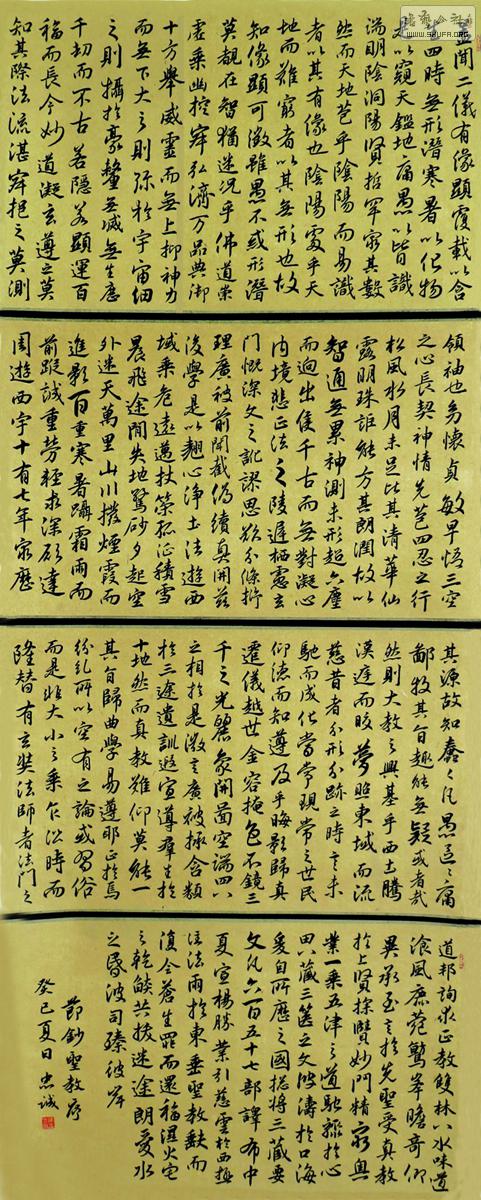 蓋聞二儀有像顯覆載以含
生四時無形潛寒暑以化物
是以窺天鑑地庸愚皆識
端明陰洞陽賢哲罕窮其數
然而天地苞乎陰陽而易識
者以其有像也陰陽處乎天
地而難窮者以其無形也故
知像顯可徵雖愚不惑形潛
莫覩在智猶迷況乎佛道崇
虛乘幽控寂弘濟万品典御
十方舉威靈而無上抑神力
而無下大之則彌於宇宙細
之則攝於豪釐無滅無生歷
千劫而不古若隱若顯運百
福而長今妙道凝玄遵之莫
知其際法流湛寂挹之莫測
領袖也幼懷貞敏早悟三空
之心長契神情先苞四忍之行
松風水月未足比其清華仙
露明珠詎能方其朗潤故以
智通無累神測未形超六塵
而迥出隻千古而無對凝心
內境悲正法之陵遲栖慮玄
門慨深文之訛謬思欲分條析
理廣彼前聞截偽續真開茲
後學是以翹心淨土法遊西
域乘危遠邁杖策孤征積雪
晨飛途間失地驚砂夕起空
外迷天萬里山川撥煙霞而
進影百重寒暑躡霜雨而
前蹤誠重勞輕求深願達
周遊西宇十有七年窮歷
其源故知蠢蠢凡愚區區庸
鄙投其旨趣能無疑或者哉
然則大教之興基乎西土騰
漢庭而皎夢照東域而流
慈昔者分形分跡之時言未
馳而成化當常現常之世民
仰德而知遵及乎晦影歸真
遷儀越世金容掩色不鏡三
千之光麗象開圖空端四八
之相於是微言廣被拯含類
於三途遺訓遐宣導群生於
十地然而真教難仰莫能一
其旨歸曲學易遵耶正於焉
紛糺所以空有之論或習俗
而是非大小之乘乍沿時而
隆替有玄奘法師者法門之
道邦詢求正教雙林八水味道
飡風鹿菀鷲峯瞻奇仰
異承至言於先聖受真教
於上賢探賾妙門精窮奧
業一乘五律之道馳驟於心
田八藏三篋之文波濤於口海
爰自所歷之國揔將三藏要
文凡六百五十七部譯布中
夏宣楊勝業引慈雲於西極
注法雨於東垂聖教缺而
復全蒼生罪而還福濕火宅
之乾燄共拔迷途朗愛水
之昏波同臻彼岸
節鈔聖教序
癸巳夏日忠誠